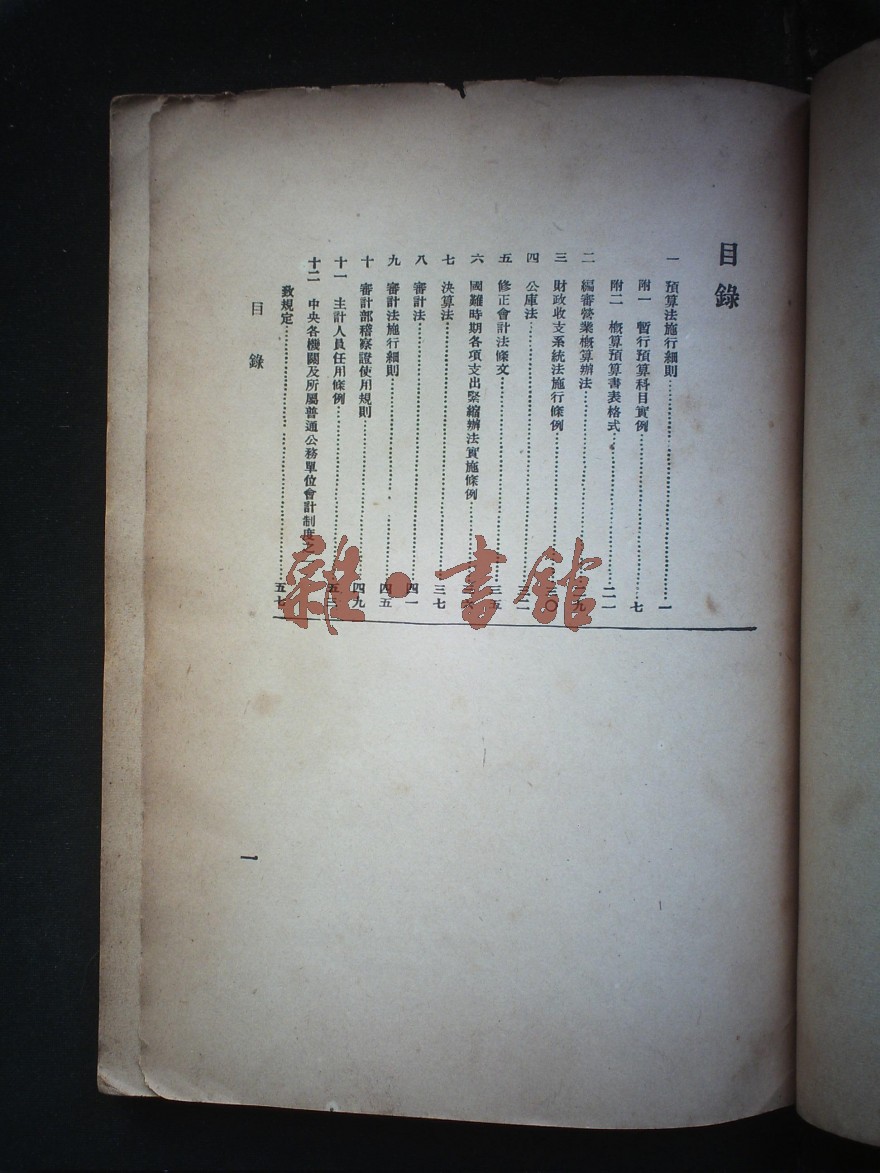 目錄
一 預算法施行細則……一
附一 暫行預算科目實例……七
附二 概算預算書表格式……二一
二 編審營業概算辦法……九
三 財政收支系統法施行條例……〇
四 公庫法……
五 修正會計法條文……三五
六 國難時期各項支出緊縮辦法實施條例……六
七 決算法……三七
八 審計法……四一
九 審計法施行細則……四五
十 審計部稽察證使用規則……四九
十一 主計人員任用條例……五三
十二 中央各機關及所屬普通公務單位會計制度之
致規定……五七
目錄
一
雜·書館